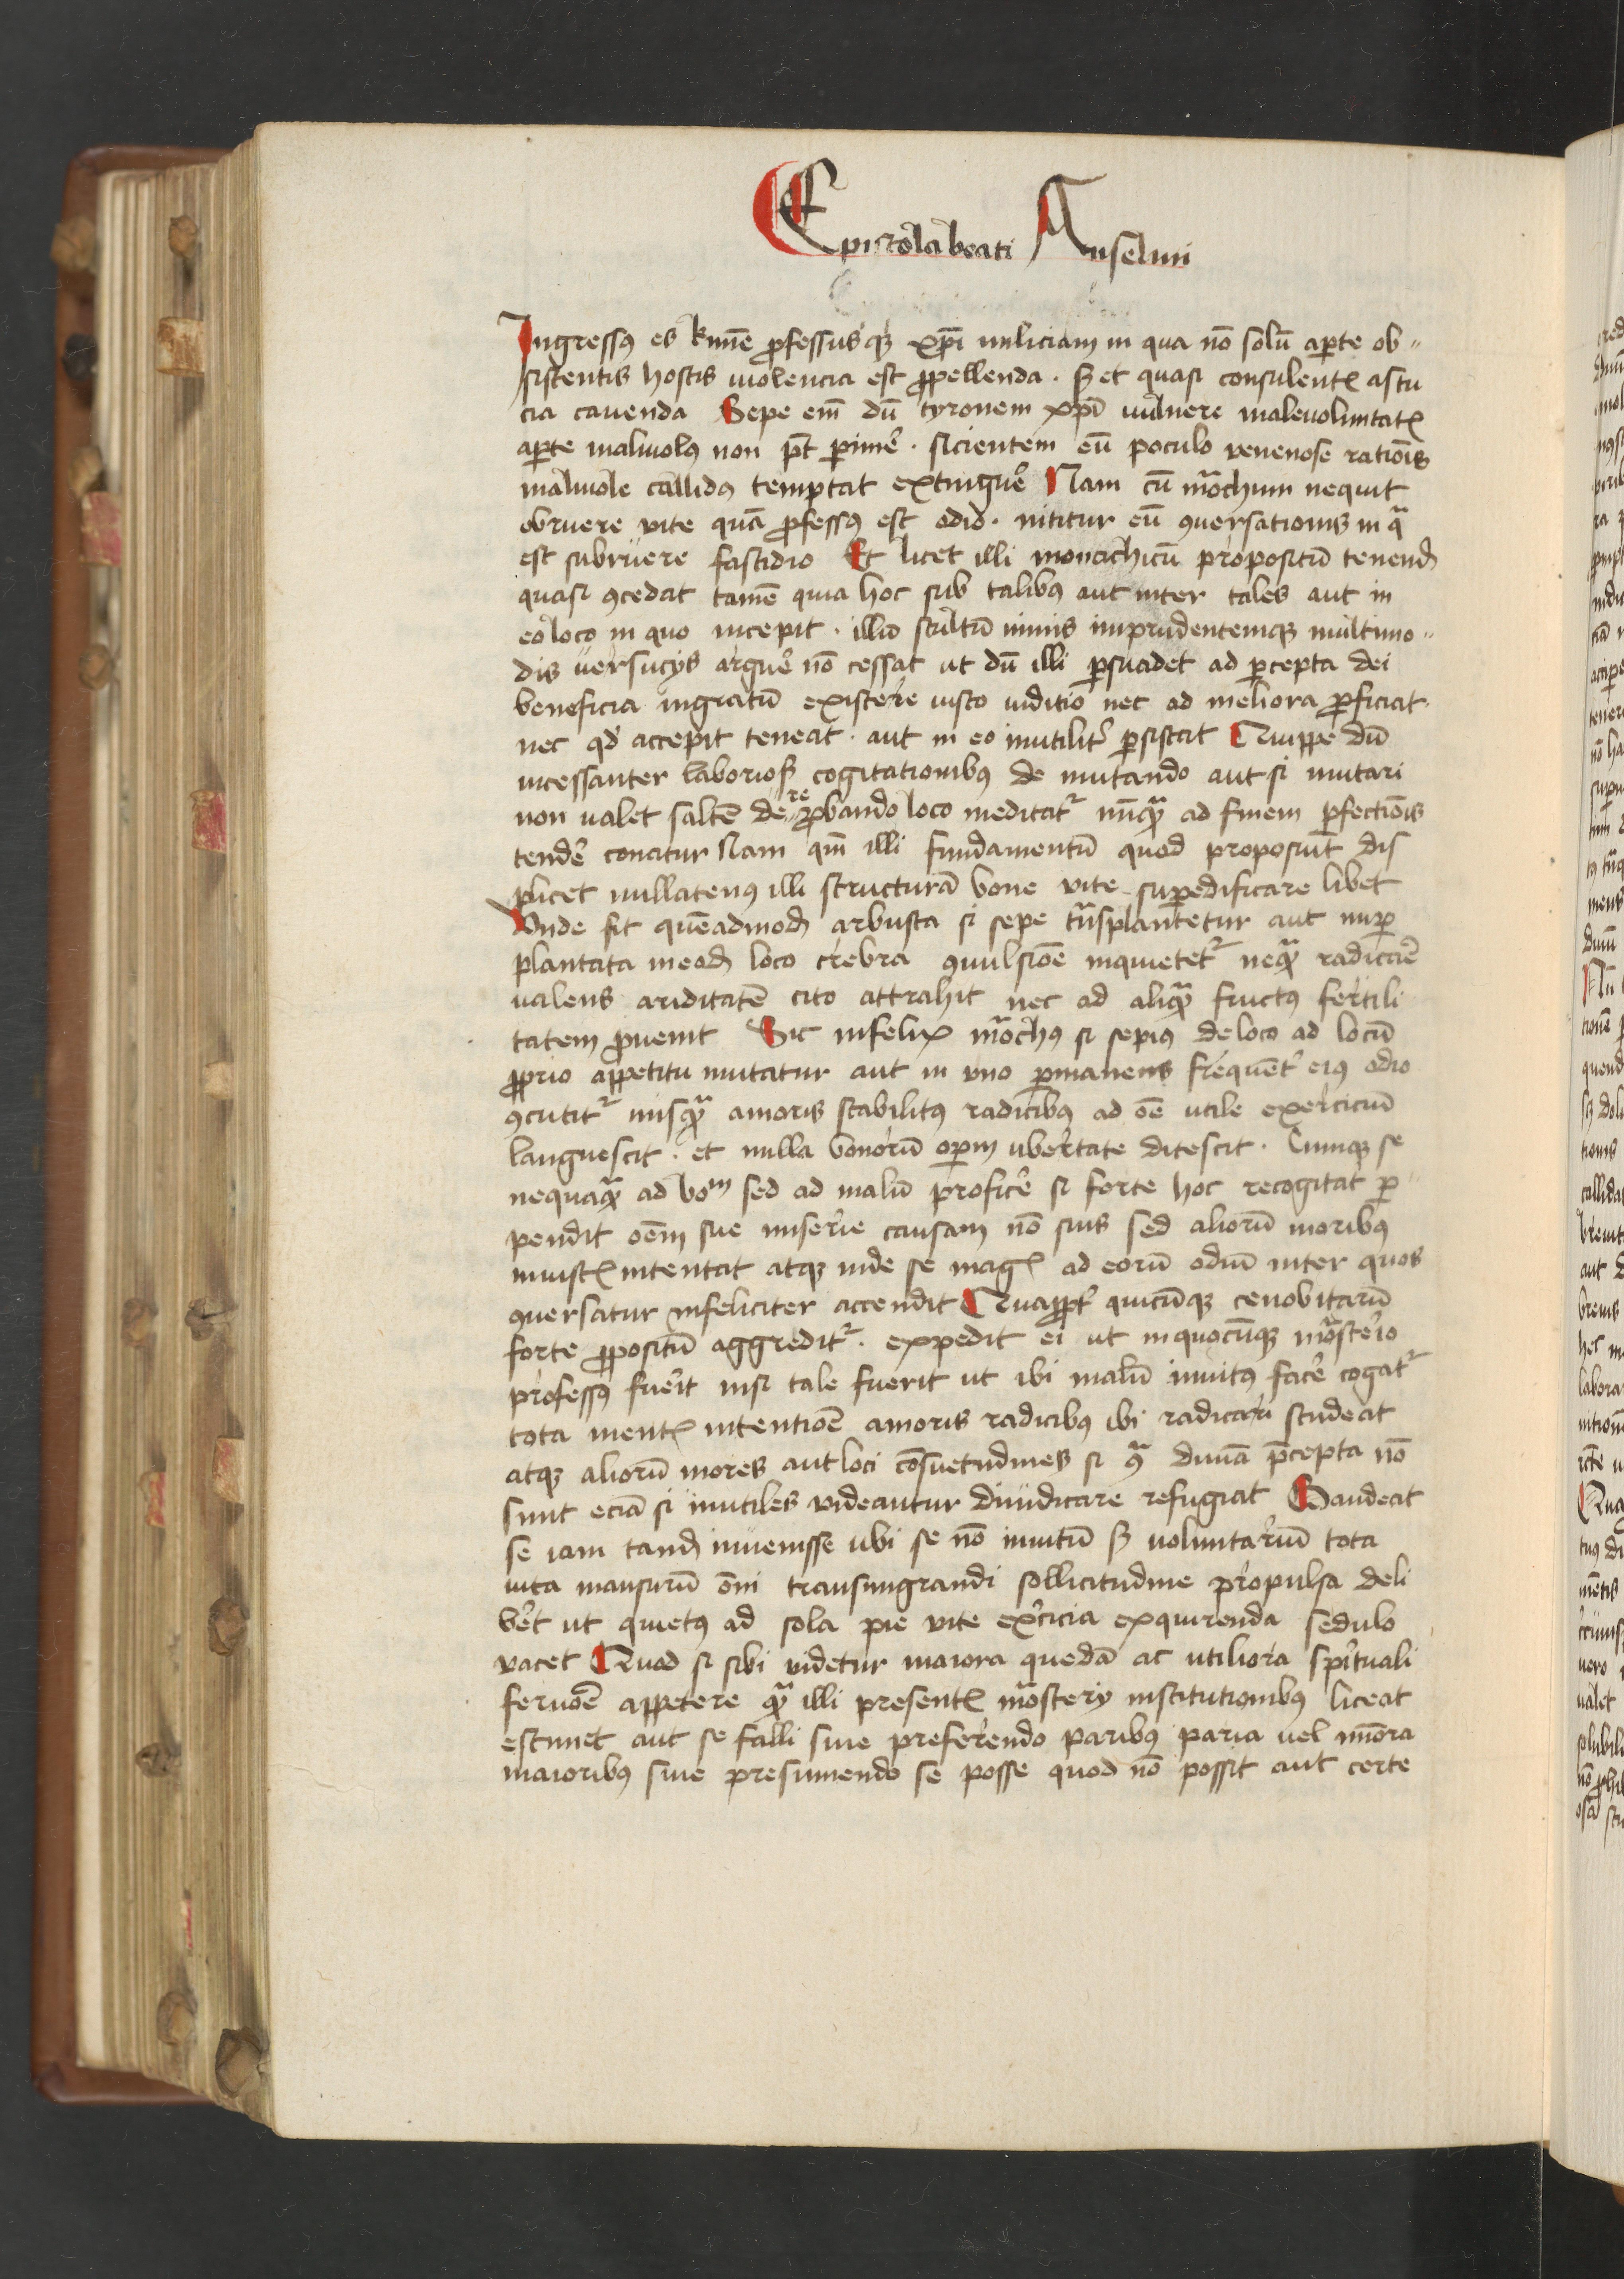 Epistola beati Anselmi
Ingressꝰ es kmē ꝓfessusqꝫ xp̄i miliciam in qua nō solū aꝑte ob〃
sistentis hostis uiolencia est ꝓpellenda . sꝫ et quasi consulentꝭ astu
cia cauenda Sepe em̄ dū tyronem xp̄i uulnere maleuoluntatꝭ
aꝑte maliuolꝰ non pt̄ ꝑimē . sicientem eū poculo venenose rationis
maliuole callidus temptat extinguē Nam cū mͣochum nequit
obruere vite quā ꝓfessꝰ est odio . nititur eū ꝯuersationis in qͣ
est subruere fastidio Et licet illi monachicū propositū tenend
quasi ꝯcedat tamē quia hoc sub talibꝰ aut inter tales aut in
eo loco in quo incepit . illud stultū nimis imprudentemqꝫ multimo〃
dis uersucijs arguē nō cessat ut dū illi ꝑsuadet ad ꝑcepta dei
beneficia ingratū existere iusto iuditio nec ad meliora ꝓficiat .
nec qd̄ accepit teneat . aut in eo inutilit̄ ꝑsistat Quippe dū
incessanter laboriosꝭ cogitationibꝰ de mutando aut si mutari
non ualet saltē de reꝓbando loco meditat᷑ nūqͣꝫ ad finem ꝑfectiōis
tendē conatur Nam qm̄ illi fundamentū quod proposuit dis
plicet nullatenꝰ illi structurā bone vite suꝑedificare libet
Vnde fit quēadmodꝫ arbusta si sepe tͣnsplantetur aut nuꝑ
plantata in eodꝫ loco crebra ꝯuulsiōe inquietet᷑ neqͣꝫ radicāē
ualens ariditatē cito attrahit nec ad aliqͣꝫ fructꝰ fertili
tatem ꝓuenit Sic infelix mͣochꝰ si sepiꝰ de loco ad locū
ꝓprio appetitu mutatur aut in vno ꝑmanens frequent̄ eiꝰ odio
ꝯcutit᷑ nusqͣꝫ amoris stabilitꝰ radicibꝰ ad oē utile exerciciū
languescit . et nulla bonorū oꝑm ubertate ditescit . Cumqꝫ se
nequaqͣꝫ ad boᵐ sed ad malū proficē si forte hoc recogitat ꝑ〃
pendit oēm sue miserie causam nō suis sed aliorū moribꝰ
iniustꝭ intentat atqꝫ inde se magꝭ ad eorū odiū inter quos
ꝯuersatur infeliciter accendit Quaꝓpt̄ quicūqꝫ cenobitarū
forte ꝓpositū aggredit᷑ . expedit ei ut in quocūqꝫ mͣosterio
professꝰ fuerit nisi tale fuerit ut ibi malū inuitꝰ facē cogat᷑
tota mentꝭ intentiōe amoris radicibꝰ ibi radicari studeat
atqꝫ aliorū mores aut loci cōsuetudines si ꝯͣ diuinā p̄cepta nō
sunt eciā si inutiles uideantur diiudicare refugiat Gaudeat
se iam tandꝫ inuenisse ubi se nō inuitū sꝫ uoluntariū tota
uita mansurū ōni transmigrandi sollicitudine propulsa deli
bēt ut quietꝰ ad sola pie vite ex̄cicia exquirenda sedulo
vacet Quod si sibi uidetur maiora quedā ac utiliora spirituali
feruoē appetere qͣꝫ illi presentꝭ mͣosterij institutionibꝰ liceat
estimet aut se falli siue preferendo paribꝰ paria uel mīora
maioribꝰ siue presumendo se posse quod nō possit aut certe